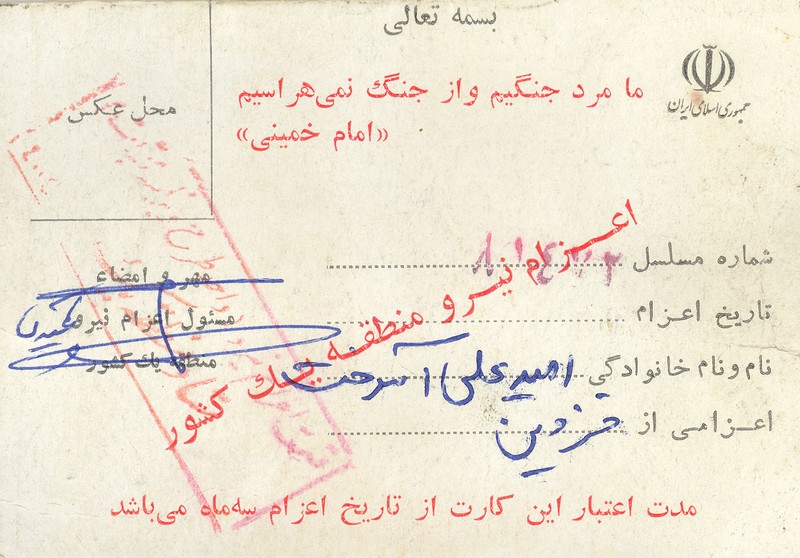 بسمه تعالی
جمهوری اسلامی ایران
ما مرد جنگیم و از جنگ نمی‌هراسیم
«امام خمینی»
محل عکس
شماره مسلسل
تاریخ اعزام
نام و نام خانوادگی امیرعلی
اعزامی از قزوین
اعزام نیرو منطقه یک کشور
مهر و امضاء
مسئول اعزام نیرو
منطقه یک کشور
مدت اعتبار این کارت از تاریخ اعزام سه‌ماه می‌باشد